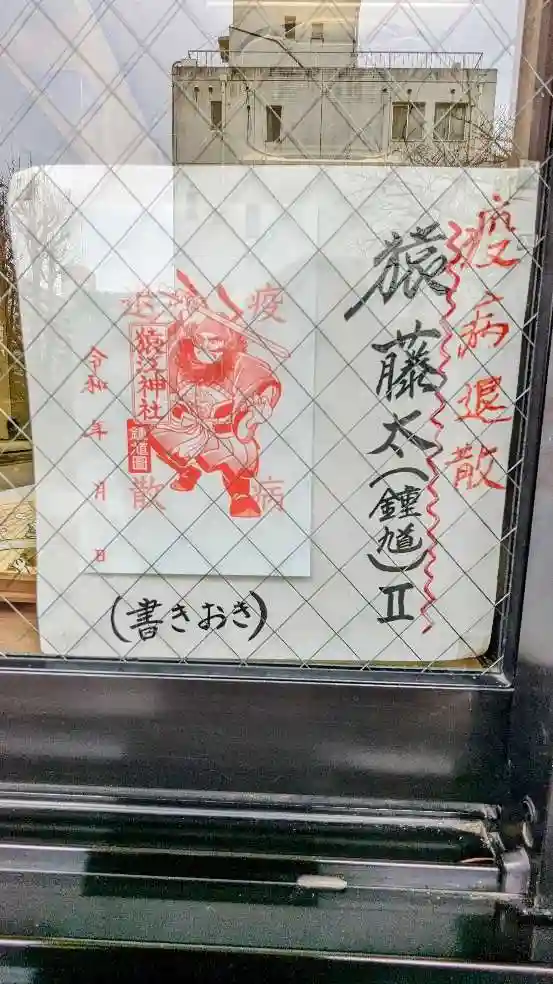 疫病退散
猿藤太(鍾馗)Ⅱ
疫病
退散
猿江神社
鍾馗圖
令和 年 月 日
(書きおき)